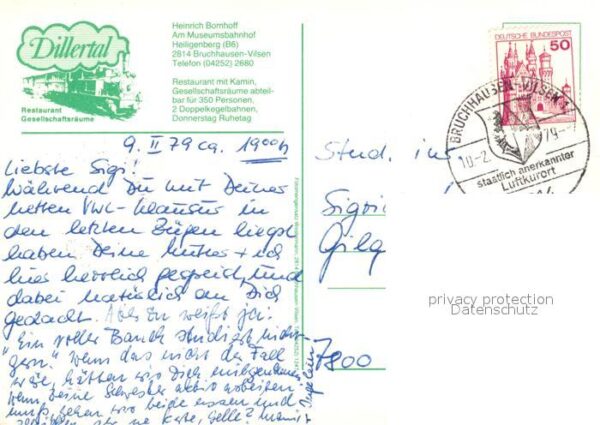 Dillertal
Restaurant
Gesellschaftsräume
Heinrich Bomhoff
Am Museumsbahnhof
Heiligenberg (B6)
2814 Bruchhausen-Vilsen
Telefon (04252) 2680
Restaurant mit Kamin,
Gesellschaftsräume abteil-
bar für 350 Personen,
2 Doppelkegelbahnen,
Donnerstag Ruhetag
9. II 79 ca. 19ooh
Liebste Sigi!
Während Du mit Deiner
VWL-Klausur in
den letzten Zügen liegst
haben Deine + ich
hier herrlich gespeist, und
dabei natürlich an Dich
gedacht. Aber Du weißt ja:
"Ein voller Bauch studiert nicht
gern." Wenn das nicht der Fall
wäre, hätten wir Dich mitgenommen
wenn Deine Schwester aktiv arbeiten
muß, gehen wir beide essen und
eine Karte, gelle?
DEUTSCHE BUNDESPOST
50
BRUCHHAUSEN-VILSEN 1
10-2.
79-
Staatlich anerkannter
Luftkurort
Stud.
Gilg
7800
privacy protection
Datenschutz